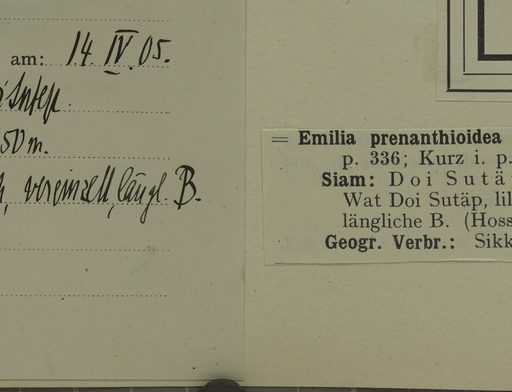 am: 14. IV. 05.
Sutep.
50 m.
vereinzelt, längl. B.
= Emilia prenanthioidea
p. 336; Kurz i. p.
Siam: Doi Sutä
Wat Doi Sutäp, lil
längliche B. (Hoss
Geogr. Verbr.: Sikk